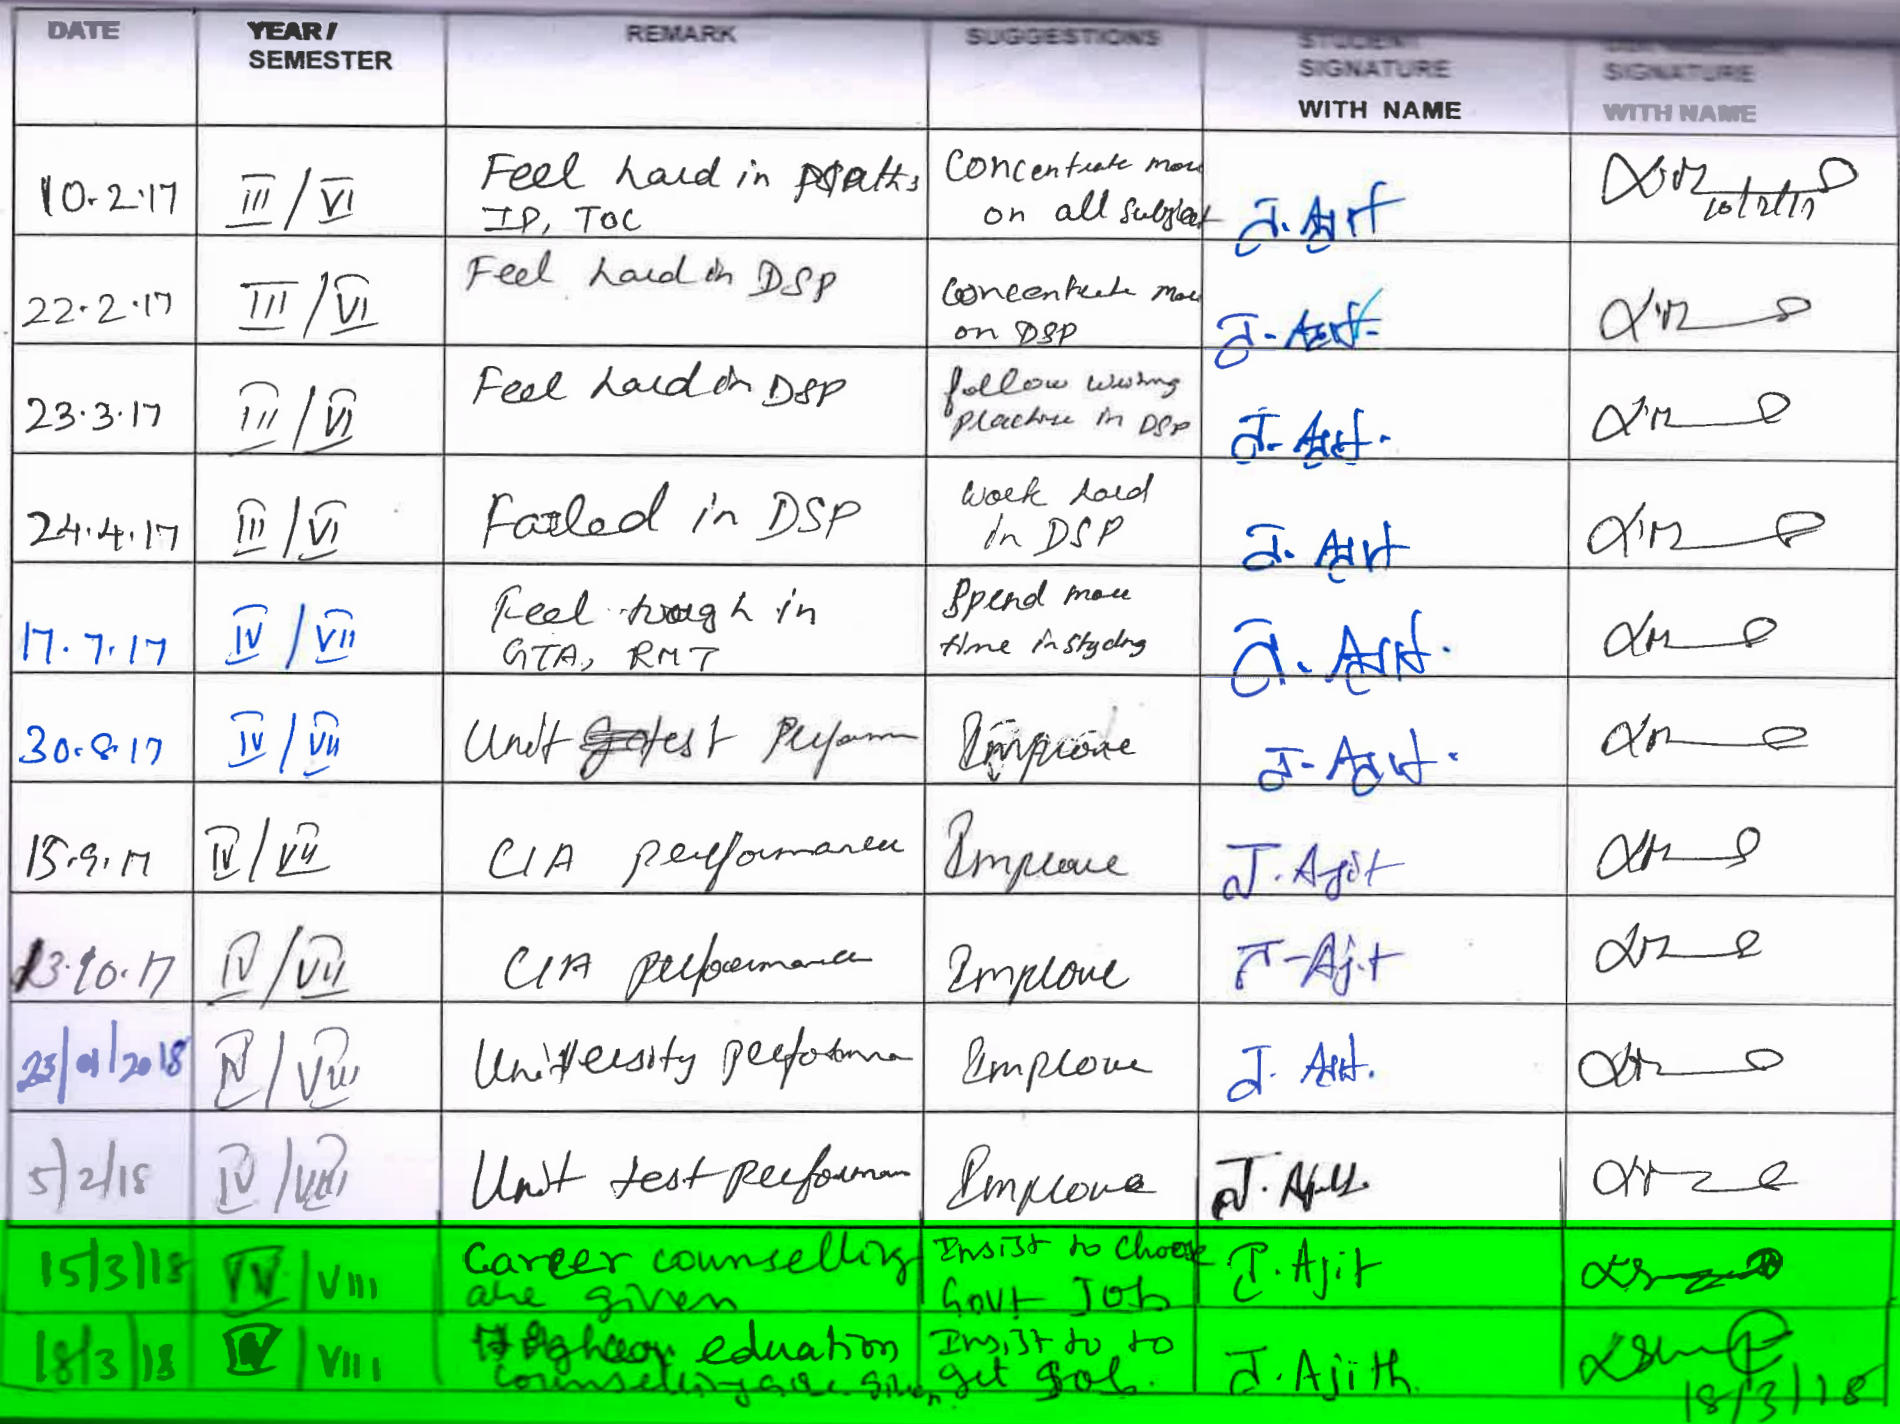 DATE YEAR/ REMARK SUGGESTIONS STUDENT
SEMESTER SIGNATURE SIGNATURE
WITH NAME WITH NAME
10.2.17 III/VI Feel hard in Maths Concentrate more
IP, TOC on all subject J. Ajit
10/2/17
22.2.17 III/VI Feel hard in DSP Concentrate more
on DSP J. Ajit
23.3.17 III/VI Feel hard in DSP follow writing
practice in DSP J. Ajit.
24.4.17 III/VI Failed in DSP work hard
in DSP J. Ajit
17.7.17 IV/VII Feel tough in Spend more
GTA, RMT time in stydng J. Ajit.
30.8.17 IV/VII Unit test Perform Improve J. Ajit.
15.9.17 IV/VII CIA performance Improve J. Ajit
23.10.17 IV/VII CIA performance Improve J. Ajit
23/01/2018 IV/VIII University performa Improve J. Ajit.
5/2/18 IV/VIII Unit test performan Improve J. Ajith.
15/3/18 IV/VIII Career counselling Insist to choose J. Ajit
are given Govt Job
18/3/18 IV/VIII Higher eduation Insist to to
counselling are given get Job. J. Ajith
18/3/18